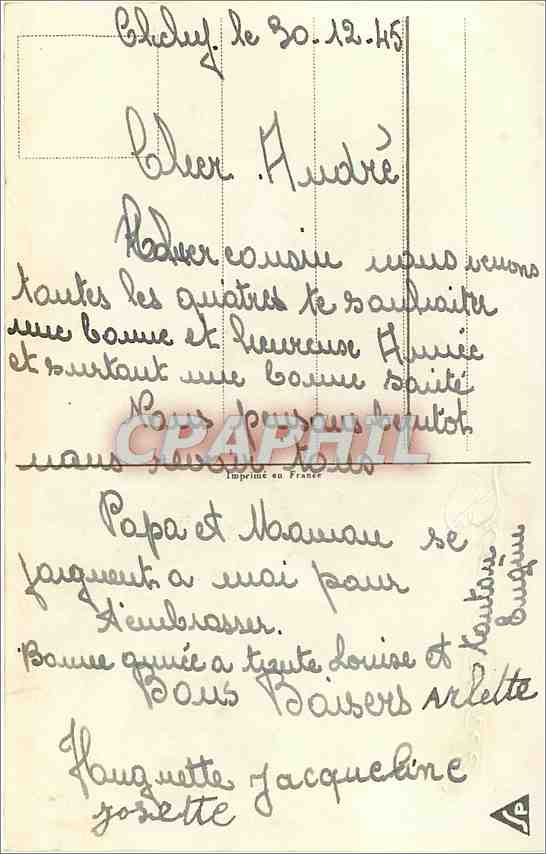 Clichy. le 30.12.45
Cher André
cher cousin nous venons
toutes les quatres te souhaiter
une bonne et heureuse Année
et surtout une bonne santé
Nous pensons bientot
CPAPHIL
nous revoir tous
Imprimé en France
Papa et Maman se
joignent a moi pour
t'embrasser.
Bonne année a tante Louise et tonton
Eugène
Bons Baisers Arlette
Huguette Jacqueline
Josette